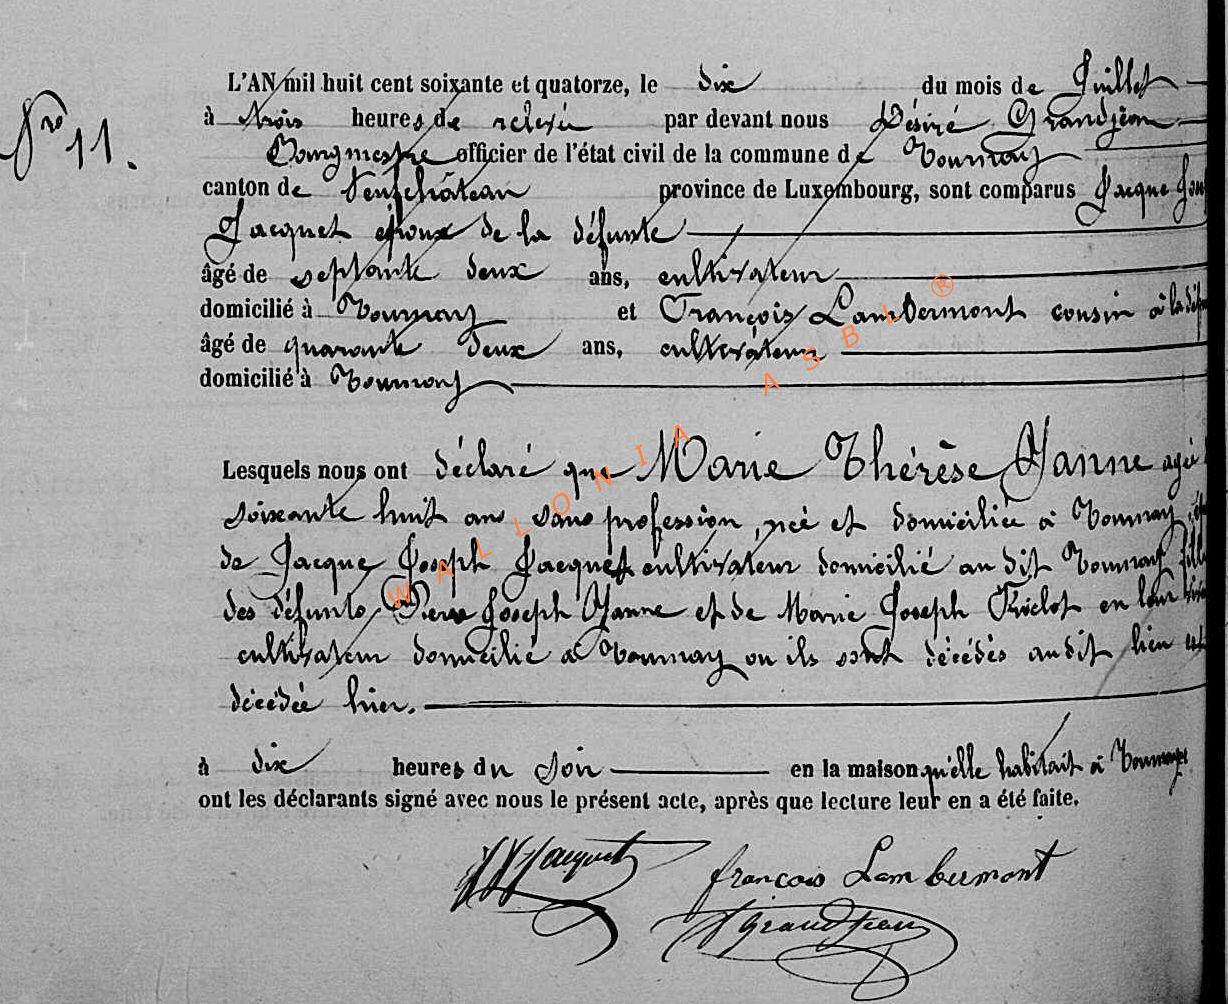 Nro 11.
L'AN mil huit cent soixante et quatorze, le dix du mois de Juillet
à trois heures de relevée par devant nous Désiré Grandjean
Bourgmestre officier de l'état civil de la commune de Tournay
canton de Neufchâteau province de Luxembourg, sont comparus Jacque
Jacquet époux de la défunte
âgé de septante deux ans, cultivateur
domicilié à Tournay et François Lambermont cousin à la
âgé de quarante deux ans, cultivateur
domicilié à Tournay
Lesquels nous ont déclaré que Marie Thérèse Janne agée
soixante huit ans sans profession, née et domiciliée à Tournay,
de Jacque Joseph Jacquet cultivateur domicilié au dit Tournay fille
des défunts Pierre Joseph Janne et de Marie Joseph en leur
cultivateur domicilié à Tournay ou ils sont décédés audit lieu est
décédée hier.
à dix heures du soir en la maison qu'elle habitait à Tournay et
ont les déclarants signé avec nous le présent acte, après que lecture leur en a été faite.
JJ Jacquet
françois Lambermont
Dgrandjean
WALLONIA ASBL ®